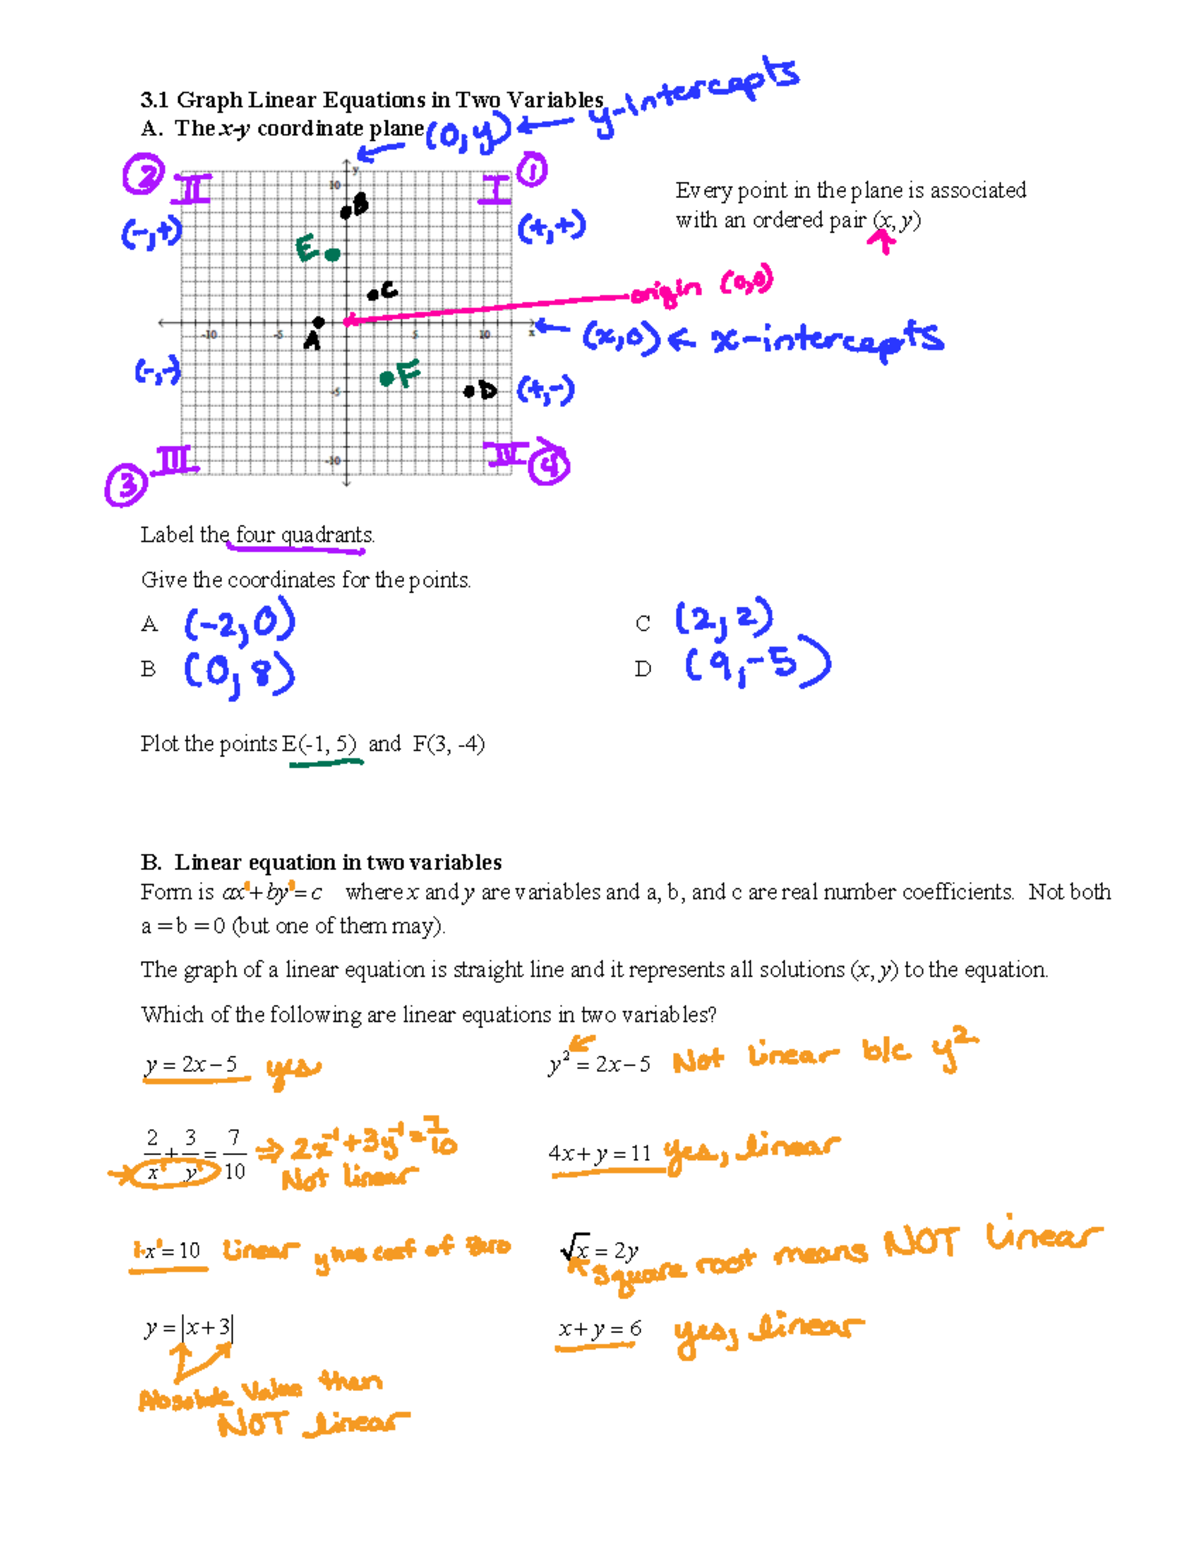 3.1 Graph Linear Equations in Two Variables
A. The x-y coordinate plane (0, y) ← y-intercepts
② II I ①
y
10
B
(-,+) (+,+)
Every point in the plane is associated
with an ordered pair (x, y)
E
C
origin (0,0)
-10 -5 5 10 x
A
(x,0) ← x-intercepts
(-,-) F D (+,-)
-5
III IV
-10
③ ④
Label the four quadrants.
Give the coordinates for the points.
A (-2, 0) C (2, 2)
B (0, 8) D (9, -5)
Plot the points E(-1, 5) and F(3, -4)
B. Linear equation in two variables
Form is ax¹ + by¹ = c where x and y are variables and a, b, and c are real number coefficients. Not both
a = b = 0 (but one of them may).
The graph of a linear equation is straight line and it represents all solutions (x, y) to the equation.
Which of the following are linear equations in two variables?
y = 2x − 5 yes y² = 2x − 5 Not linear b/c y²
2/x¹ + 3/y¹ = 7/10 ⇒ 2x⁻¹ + 3y⁻¹ = 7/10 4x + y = 11 yes, linear
Not linear
1·x¹ = 10 Linear y has coef of zero √x = 2y
square root means NOT linear
y = |x + 3| x + y = 6 yes, linear
Absolute Value then
NOT linear